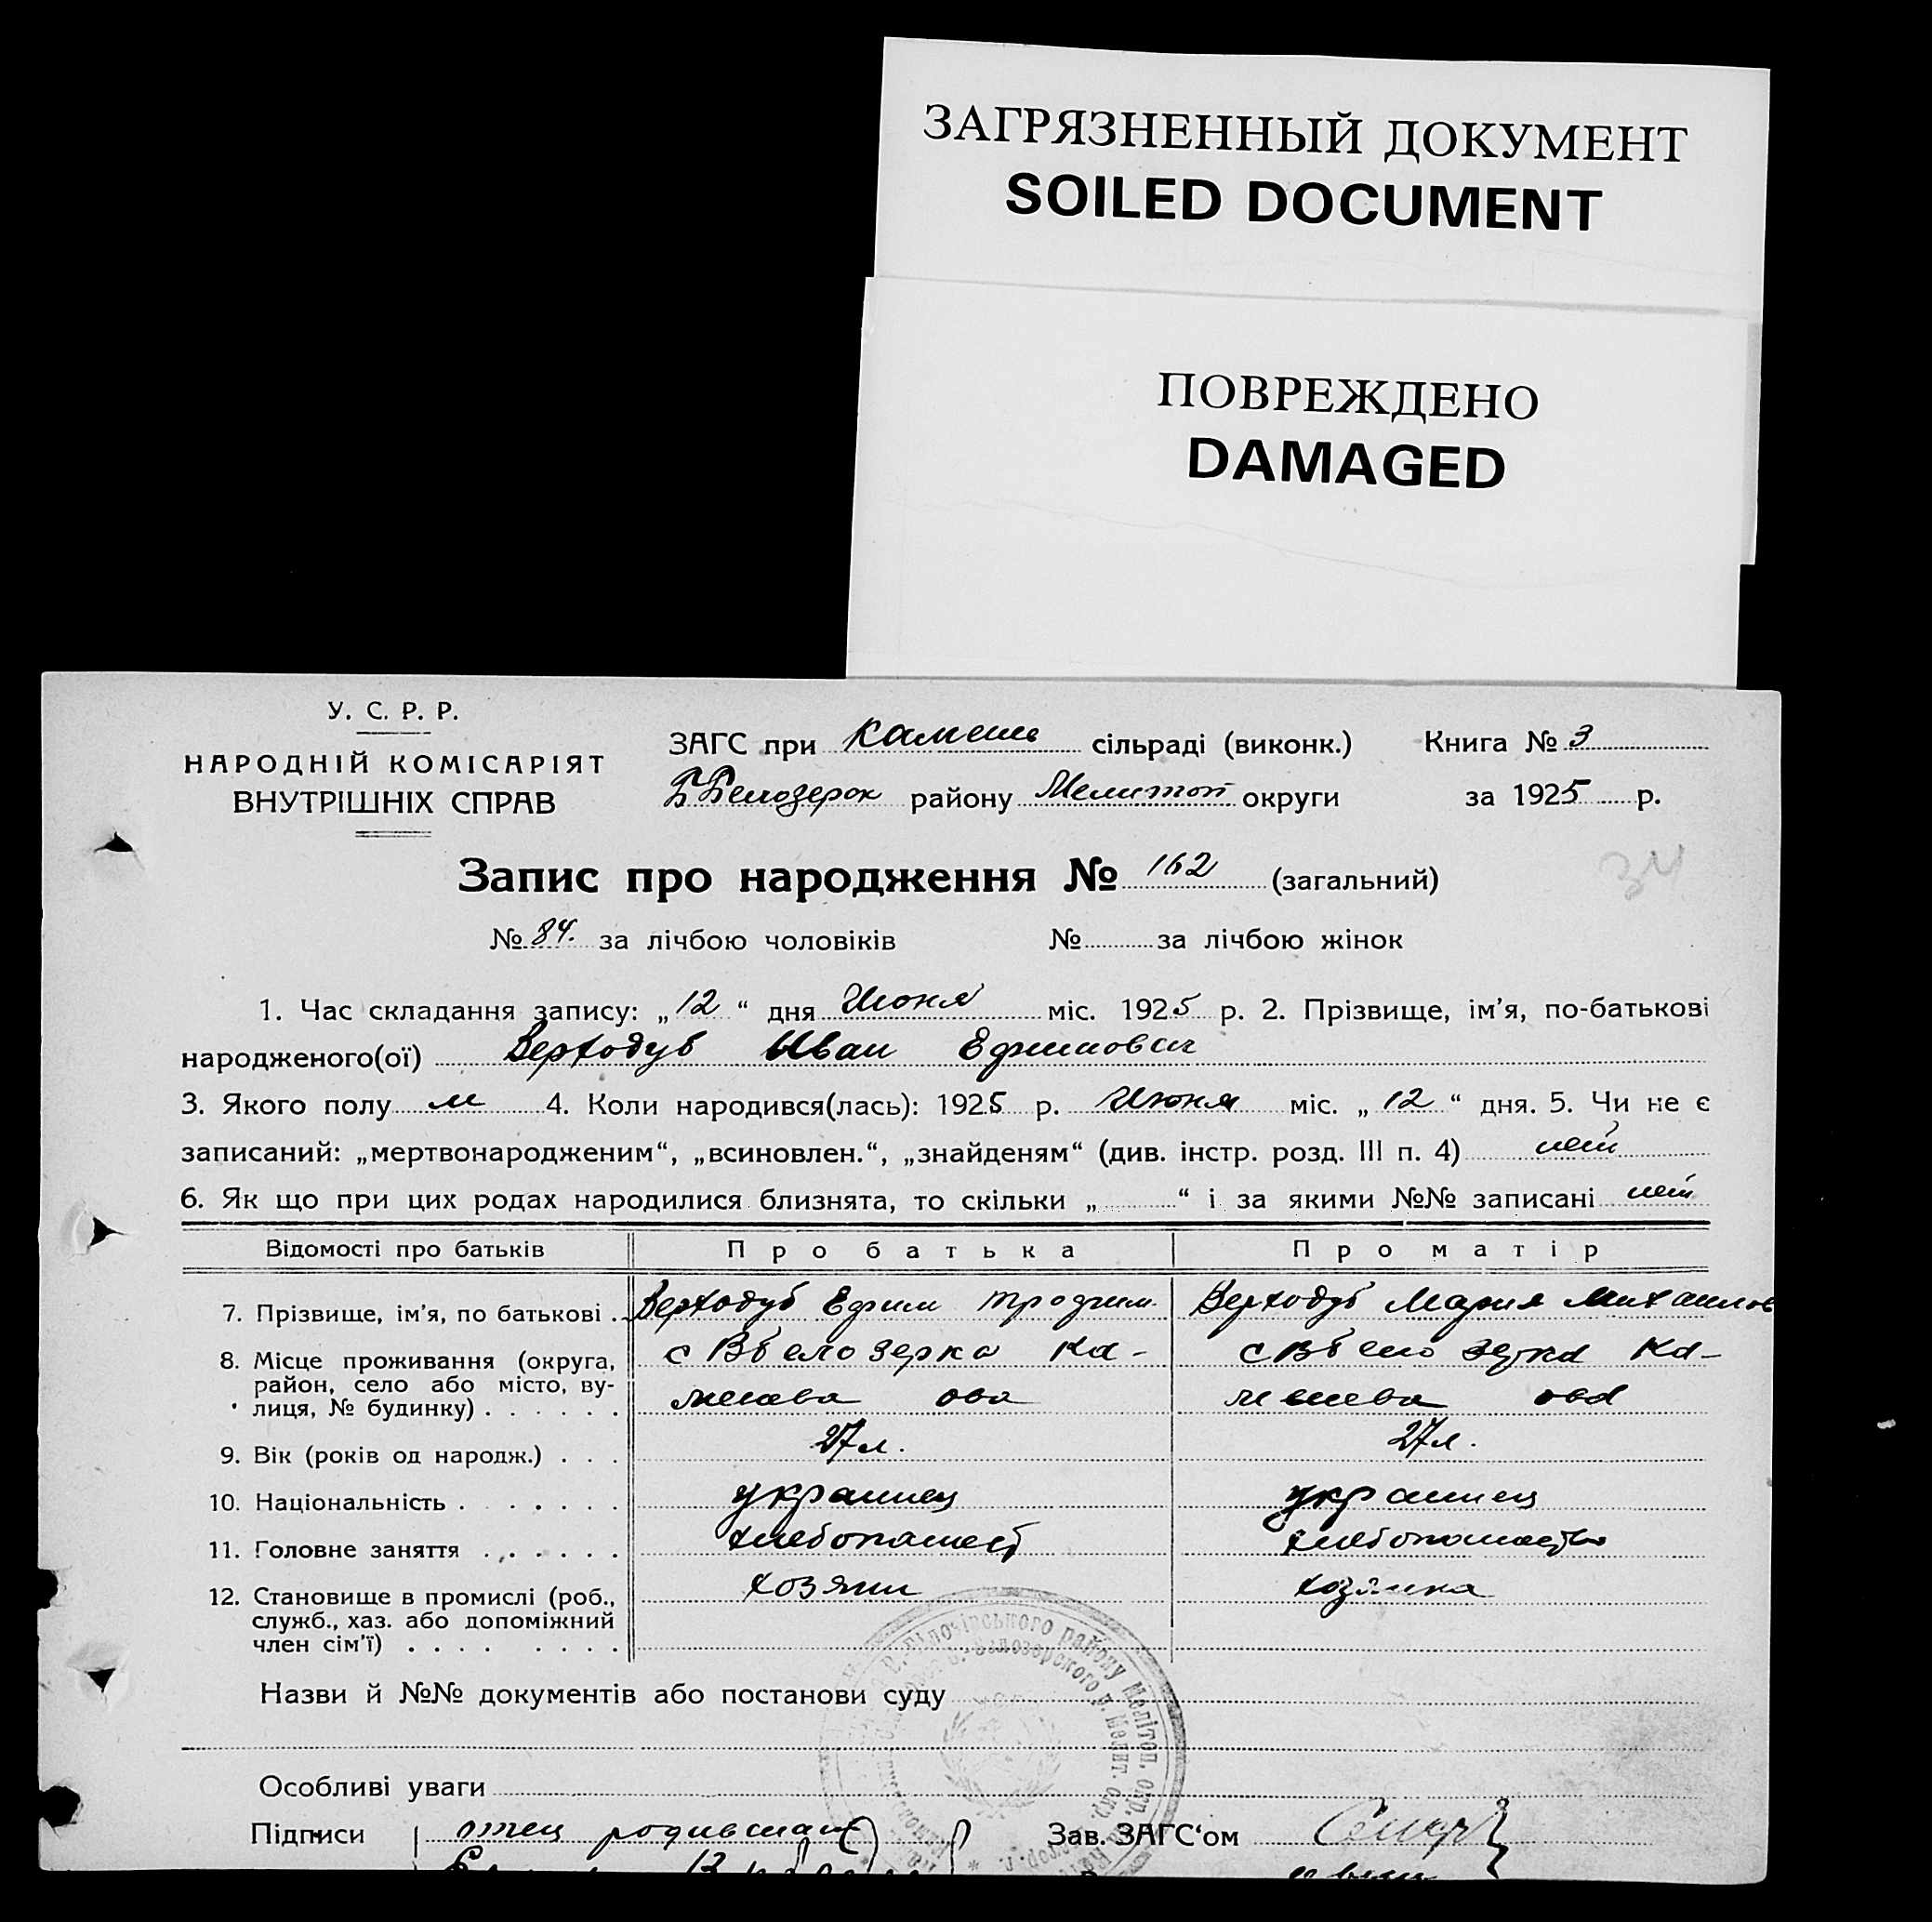 ЗАГРЯЗНЕННЫЙ ДОКУМЕНТ
SOILED DOCUMENT
ПОВРЕЖДЕНО
DAMAGED
У. С. Р. Р.
НАРОДНІЙ КОМІСАРІЯТ
ВНУТРІШНІХ СПРАВ
ЗАГС при Камень сільраді (виконк.) Книга № 3
Б Белозерок району Мелитоп округи за 1925 р.
Запис про народження № 162 (загальний)
34
№ 84. за лічбою чоловіків № за лічбою жінок
1. Час складання запису: „12“ дня Июня міс. 1925 р. 2. Прізвище, ім'я, по-батькові
народженого(ої) Верходуб Иван Ефимович
3. Якого полу м 4. Коли народився(лась): 1925 р. Июня міс. „12“ дня. 5. Чи не є
записаний: „мертвонародженим“, „всиновлен.“, „знайденям“ (див. інстр. розд. III п. 4) нет
6. Як що при цих родах народилися близнята, то скільки „ “ і за якими №№ записані нет
Відомості про батьків Про батька Про матір
7. Прізвище, ім'я, по батькові . Верходуб Ефим Трофим. Верходуб Мария Михаилов
8. Місце проживання (округа, с Вбелозерка Ка- с Вбелозерка Ка-
район, село або місто, ву-
лиця, № будинку) . . . . . . менева ова менева ова
9. Вік (років од народж.) . . . 27 л. 27 л.
10. Національність . . . . . . украинец украинец
11. Головне заняття . . . . . . хлебопашест хлебопашество
12. Становище в промислі (роб., хозяин хозяика
служб., хаз. або допоміжний
член сім'ї) . . . . . . . .
Назви й №№ документів або постанови суду
Особливі уваги
Підписи отец Зав. ЗАГС'ом